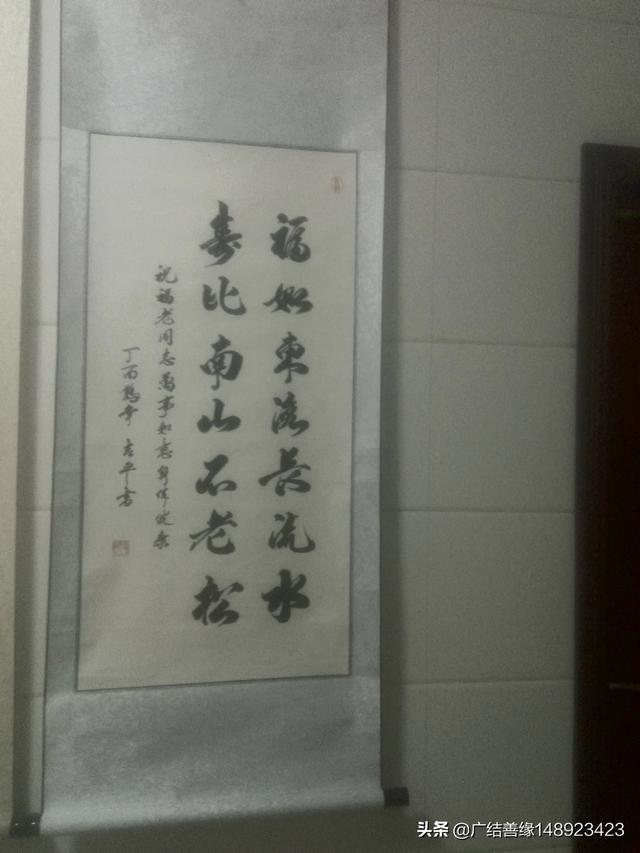 福如東海長流水
寿比南山不老松
祝福老同志萬事如意身体健康
丁酉鷄年 吉平書
头条 @广结善缘148923423